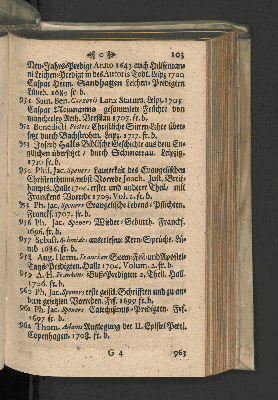 103
Neu-Jahrs-Predigt Anno 1643 auch Hülsemanni Leichen-Predigt in des Autoris Todt. Leip. 1700
Caspar Herm. Sandhagen Leichen-Predigten
Lüneb. 1685. fr. b.
951 Sam. Ben. Carpzovii Lanx Satura. Leip. 1705
Caspar Neumanns gesammlete Früchte von
mancherley Arth. Breßlau 1707. fr. b.
952 Benedicti Christliche Sitten-Lehre übersetzt durch Bachstrohen. Leip. 1717. fr. b.
953 Joseph Halls Biblische Geschichte aus dem Englischen übersetzt durch Schmettau. Leipzig.
1710 fr. b.
954 Phil. Jac. Speners Lauterkeit des Evangelischen
Christenthums, nebst Vorrede Joach. Just. Breithaupts. Halle 1706. erster und anderer Theil, mit
Franckens Vorrede 1709. Vol. 2. fr. b.
955 Ph. Jac. Speners Evangelische Lebens-Pflichten.
Franckf. 1707. fr. b.
956 Ph. Jac. Speners Wieder-Geburth. Franckf.
1696. fr. b.
957 Sebast. Schmides auserlesene Kern-Sprüche. Lünd 1686. fr. b.
958 Aug. Herm. Francken Sonn-Fest-und Apostel-
Tags-Predigten. Halle 1704. Volum. 2. fr. b.
959 A. H. Franckens Buß-Predigten 2. Theil. Hall.
1706. fr. b.
960 Ph. Jac. Speners erste geistl. Schrifften und zu andern gesetzten Vorreden. Frf. 1699 fr. b.
961 Ph. Jac. Speners Catechismus-Predigten. Frf.
1697 fr. b.
962 Thom. Adams Auslegung der II. Epistel Petri.
Copenhagen. 1708. fr. b.
G 4
963